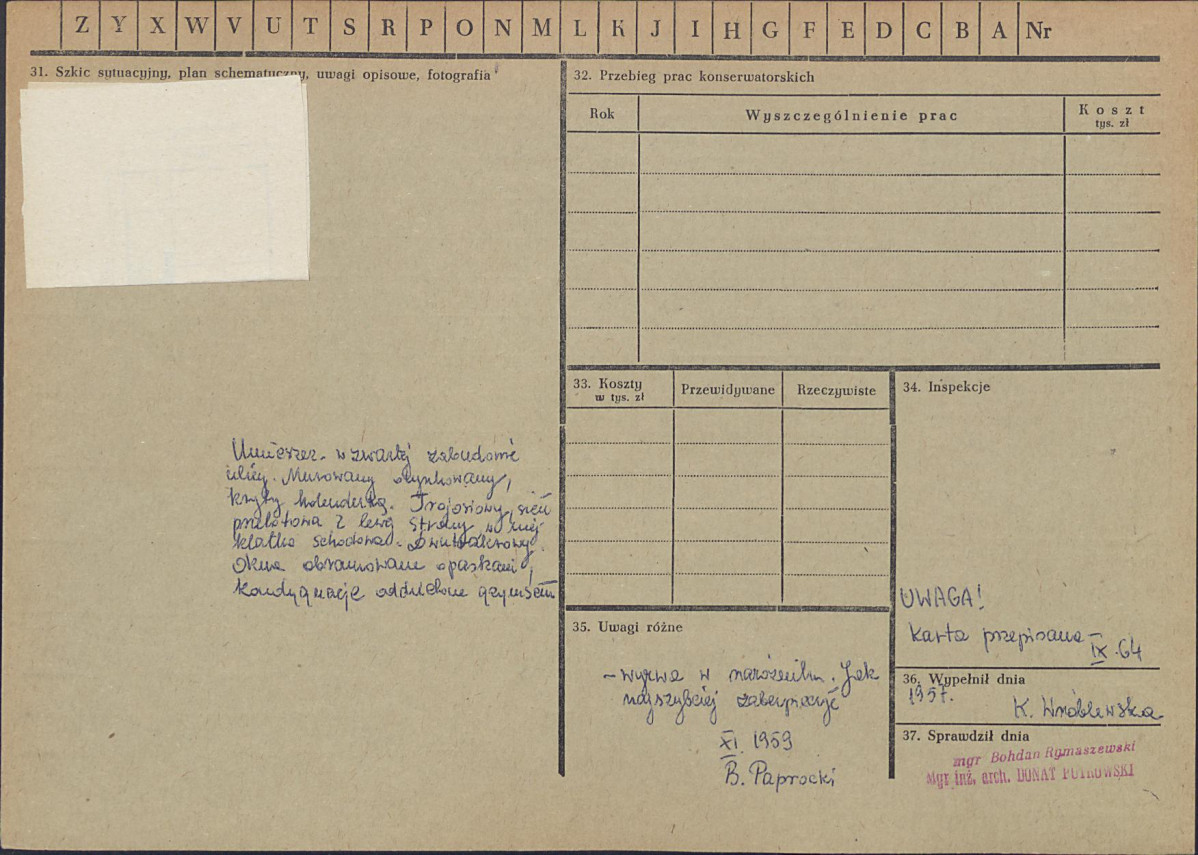 Z Y X W V U T S R P O N M L K J I H G F E D C B A Nr
31. Szkic sytuacyjny, plan schematyczny, uwagi opisowe, fotografia
Umieszcz. w zwartej zabudowie
ulicy. Murowany otynkowany,
kryty holenderką. Trojosiowy, sień
przelotowa z lewej strony, w niej
klatka schodowa. Dwutraktowy.
Okna obramowane opaskami,
kondygnacje oddzielone gzymsem
32. Przebieg prac konserwatorskich
Rok Wyszczególnienie prac Koszt
tys. zł
33. Koszty
w tys. zł
Przewidywane Rzeczywiste
34. Inspekcje
UWAGA!
karta przepisana –
IX. 64
35. Uwagi różne
– wyrwa w narożniku. Jak
najszybciej zabezpieczyć
XI 1959
B. Paprocki
36. Wypełnił dnia
1957.
K. Wróblewska
37. Sprawdził dnia
mgr Bohdan Rymaszewski
Mgr inż. arch. DONAT PUTKOWSKI